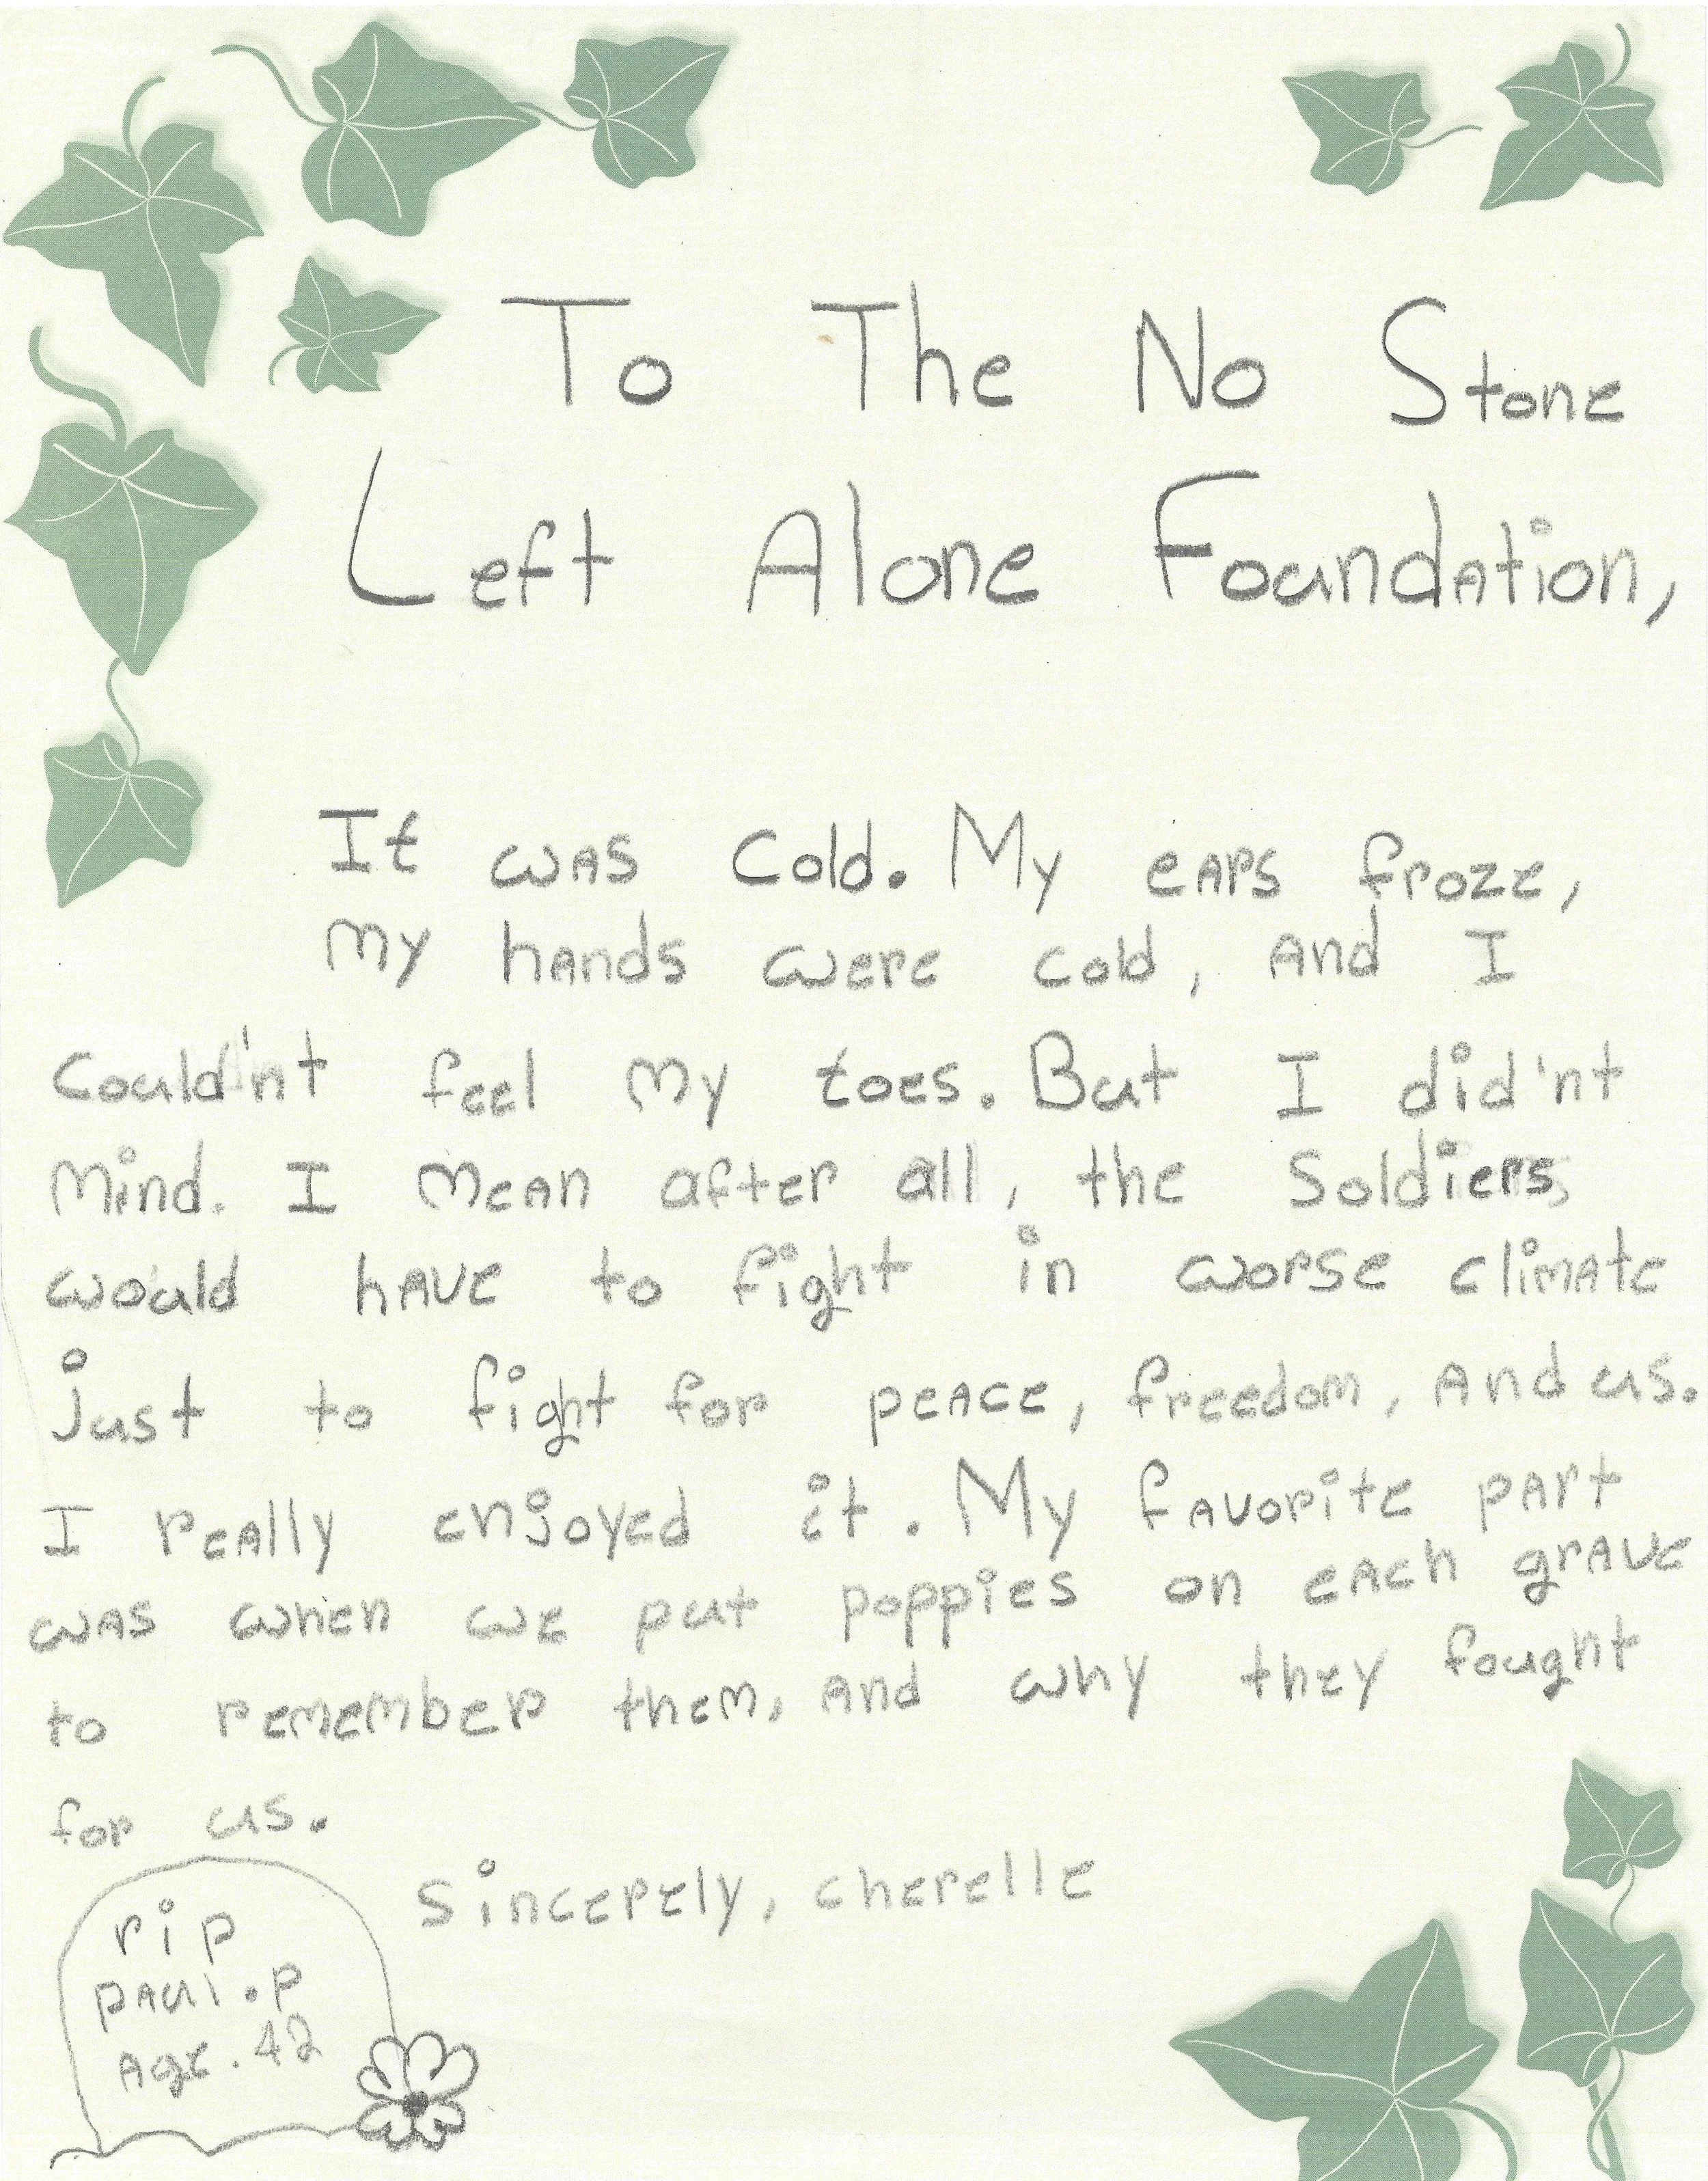 To The No Stone
Left Alone Foundation,
It was Cold. My ears froze,
my hands were cold, And I
Could'nt feel my toes. But I did'nt
Mind. I mean after all, the Soldiers
would have to fight in worse climate
just to fight for peace, freedom, And us.
I really enjoyed it. My favorite part
was when we put poppies on each grave
to remember them, and why they fought
for us.
Sincerely, cherelle
rip
paul.p
Age.42